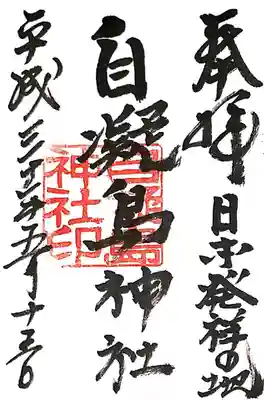 奉拝
日本発祥の地
自凝島神社
自凝島
神社印
平成三十年五月十三日